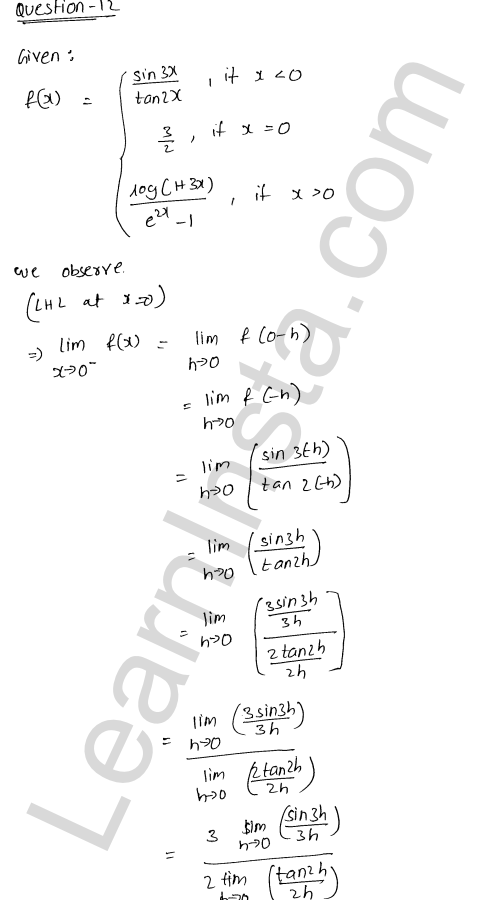 Question-12
Given :
f(x) = { sin3x / tan2x , if x < 0
3/2 , if x = 0
log(1+3x) / e^2x - 1 , if x > 0
we observe.
(LHL at x=0)
=> lim x→0⁻ f(x) = lim h→0 f(0-h)
= lim h→0 f(-h)
= lim h→0 ( sin 3(-h) / tan 2(-h) )
= lim h→0 ( sin3h / tan2h )
= lim h→0 ( (3sin3h / 3h) / (2tan2h / 2h) )
= lim h→0 (3sin3h / 3h) / lim h→0 (2tan2h / 2h)
= 3 lim h→0 (sin3h / 3h) / 2 lim h→0 (tan2h / 2h)
LearnInsta.com